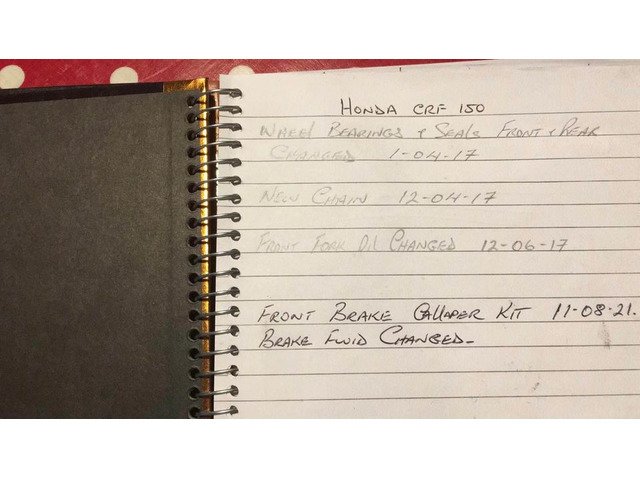 HONDA CRF 150
WHEEL BEARINGS & SEALS FRONT & REAR
CHANGED 1-04-17
NEW CHAIN 12-04-17
FRONT FORK OIL CHANGED 12-06-17
FRONT BRAKE CALLAPER KIT 11-08-21.
BRAKE FLUID CHANGED-